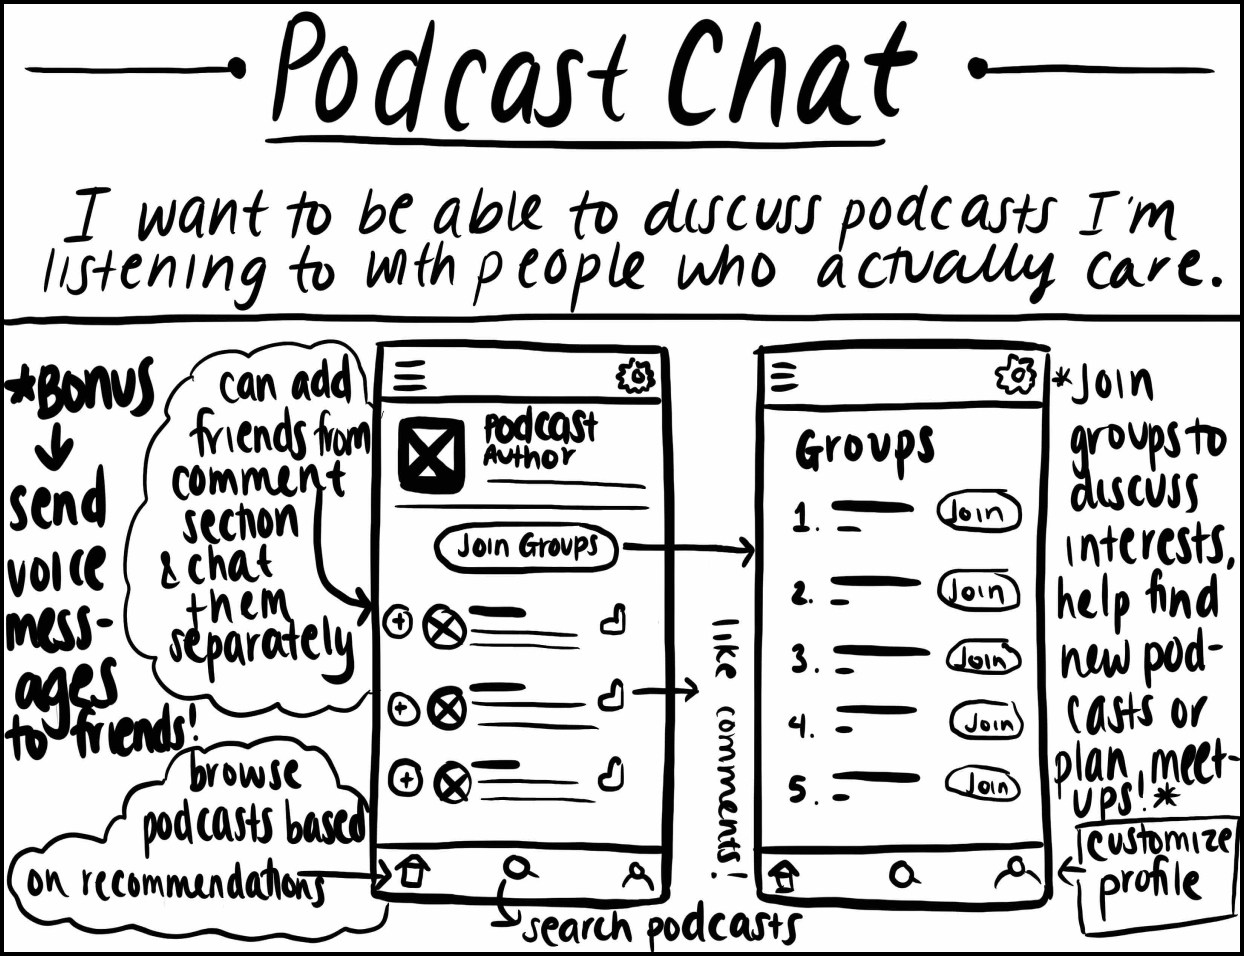 Podcast Chat
I want to be able to discuss podcasts I'm
listening to with people who actually care.
*BONUS
send
voice
mess-
ages
to friends!
can add
friends from
comment
section
& chat
them
separately
browse
podcasts based
on recommendations
Podcast
Author
Join Groups
like comments!
search podcasts
Groups
1. Join
2. Join
3. Join
4. Join
5. Join
*Join
groups to
discuss
interests,
help find
new pod-
casts or
plan meet-
ups!*
customize
profile